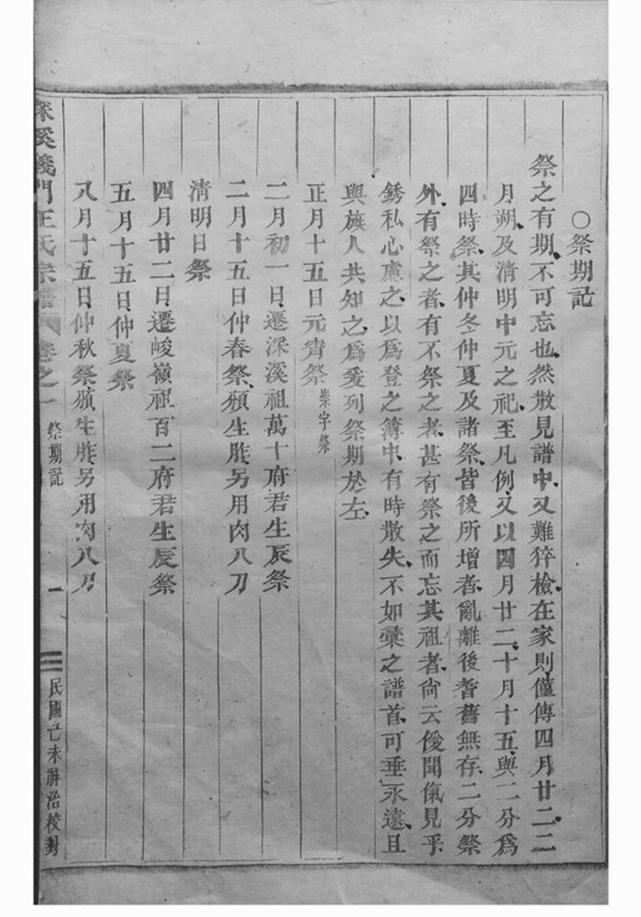 ○祭期記
祭之有期不可忘也然散見譜中又難猝檢在家則僅傳四月廿二二
月朔及清明中元之祀至凡例又以四月廿二十月十五與二分爲
四時祭其仲冬仲夏及諸祭皆後所增者亂離後暫舊無存二分祭
外有祭之者有不祭之者甚有祭之而忘其祖者尙云僾聞愾見乎
銹私心慮之以爲登之簿中有時散失不如彙之譜首可垂永遠且
與族人共知之爲爰列祭期於左
正月十五日元宵祭 崇字祭
二月初一日遷深溪祖萬十府君生辰祭
二月十五日仲春祭頒生胙另用肉八刀
清明日祭
四月廿二日遷峻嶺祖百二府君生辰祭
五月十五日仲夏祭
八月十五日仲秋祭頒生胙另用肉八刀
深溪義門王氏宗譜 卷之一 祭期記 一 民國己未辦治校對